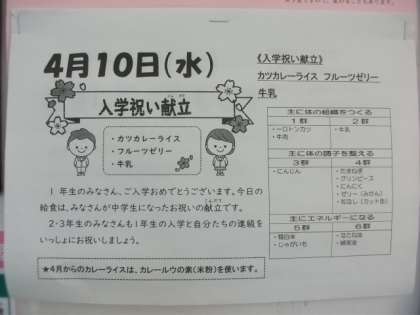 4月10日(水)
入学祝い献立
・カツカレーライス
・フルーツゼリー
・牛乳
1年生のみなさん、ご入学おめでとうございます。今日の
給食は、みなさんが中学生になったお祝いの献立です。
2・3年生のみなさんも1年生の入学と自分たちの進級を
いっしょにお祝いしましょう。
★4月からのカレーライスは、カレールウの素(米粉)を使います。
《入学祝い献立》
カツカレーライス フルーツゼリー
牛乳
主に体の組織をつくる
1群 2群
・一口トンカツ ・牛乳
・牛肉
主に体の調子を整える
3群 4群
・にんじん ・たまねぎ
・グリンピース
・にんにく
・ゼリー(みかん)
主にエネルギーになる
5群 6群
・精白米
・じゃがいも